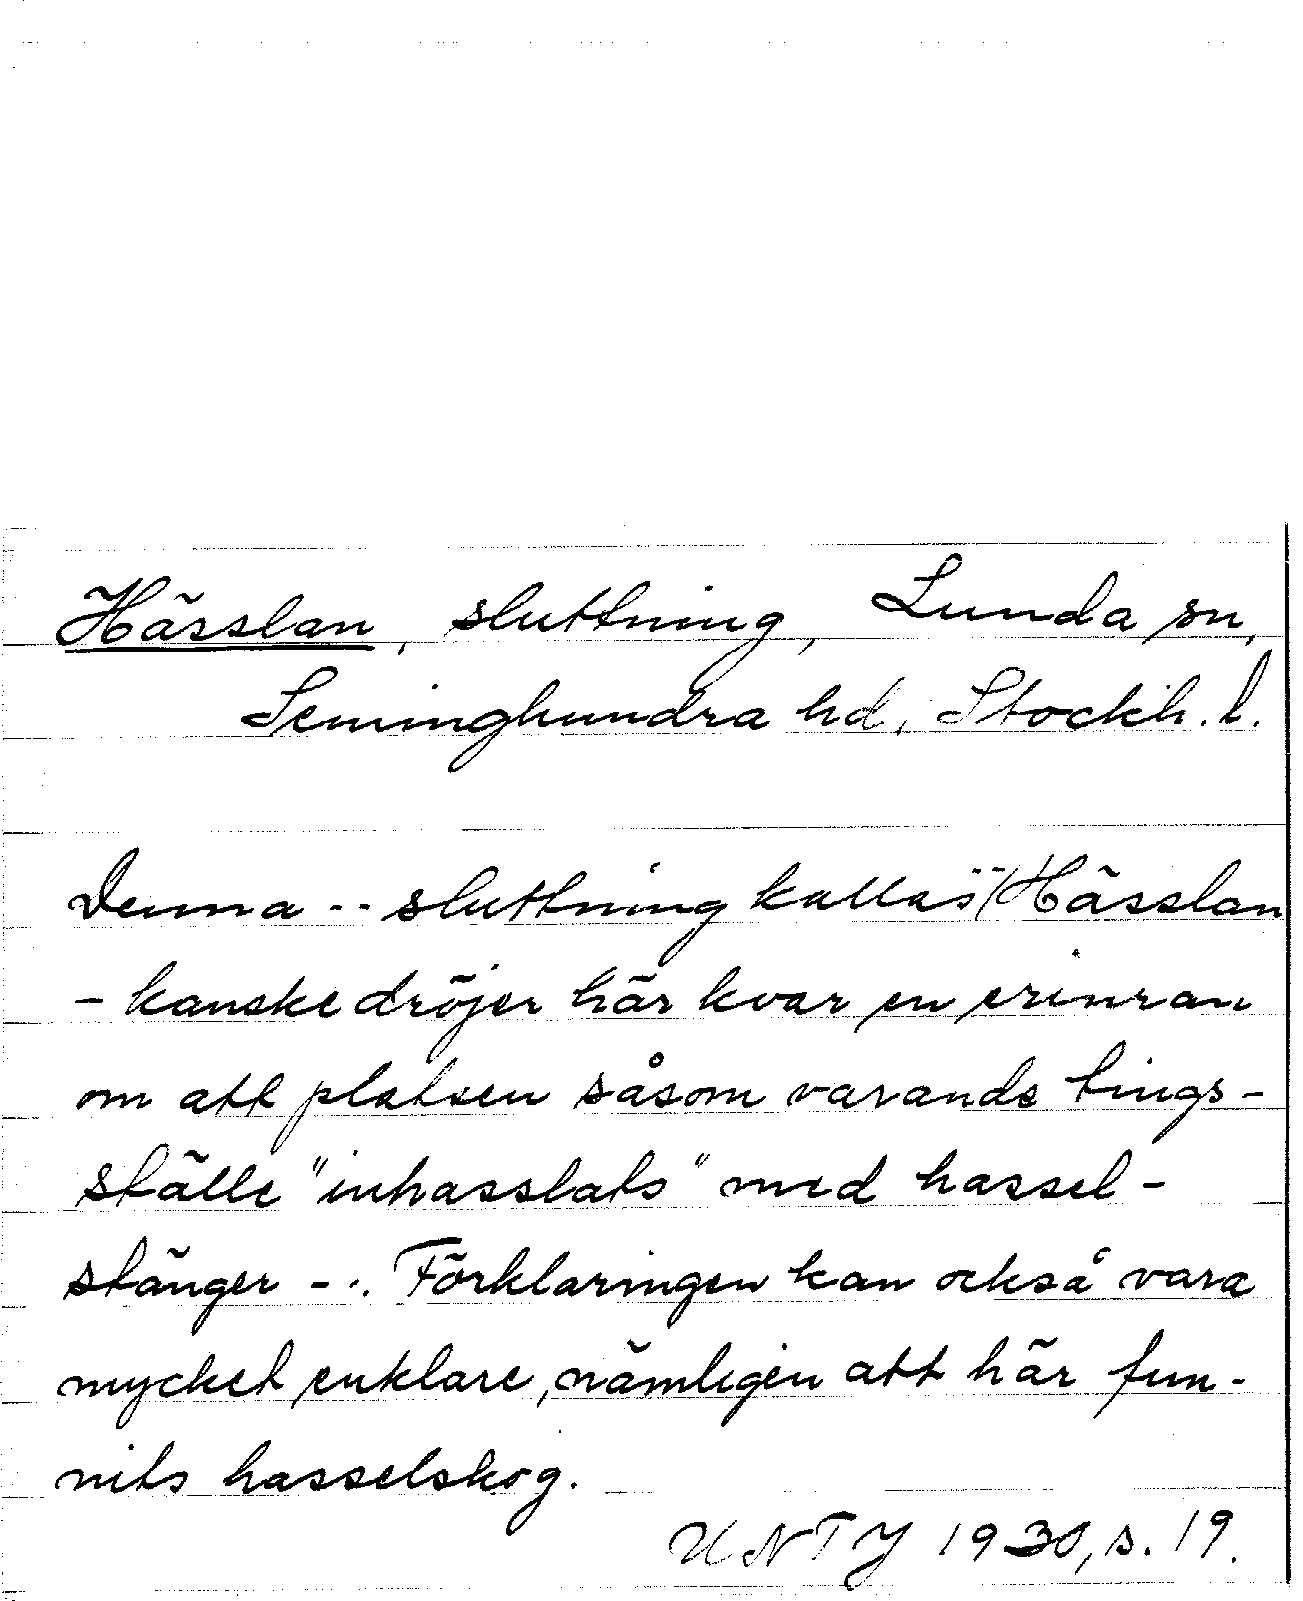 Hässlan, sluttning, Lunda sn,
Seminghundra hd, Stockh. l.
Denna -- sluttning kallas Hässlan
- kanske dröjer här kvar en erinran
om att platsen såsom varande tings-
ställe "inhasslats" med hassel-
stänger - -. Förklaringen kan också vara
mycket enklare, nämligen att här fun-
nits hasselskog.
UNTJ 1930, s. 19.